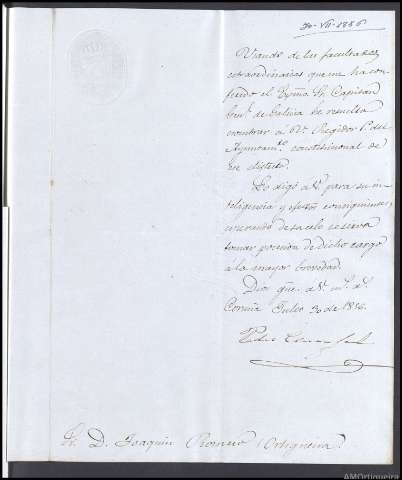 30-VII-1856
Usando de las facultades
extraordinarias que me ha con-
ferido el Exmo Sr. Capitan
Gral. de Galicia he resuelto
nombrar á V. Regidor 1º del
Ayuntamto. constitucional de
ese distrito.
Lo digo á V. para su in-
teligencia y efectos consiguientes,
esperando de su celo se sirva
tomar posesion de dicho cargo
á la mayor brevedad.
Dios gue. á V. ms. as.
Coruña Julio 30 de 1856.
Sr. D. Joaquin Romero (Ortigueira)
AMOrtigueira